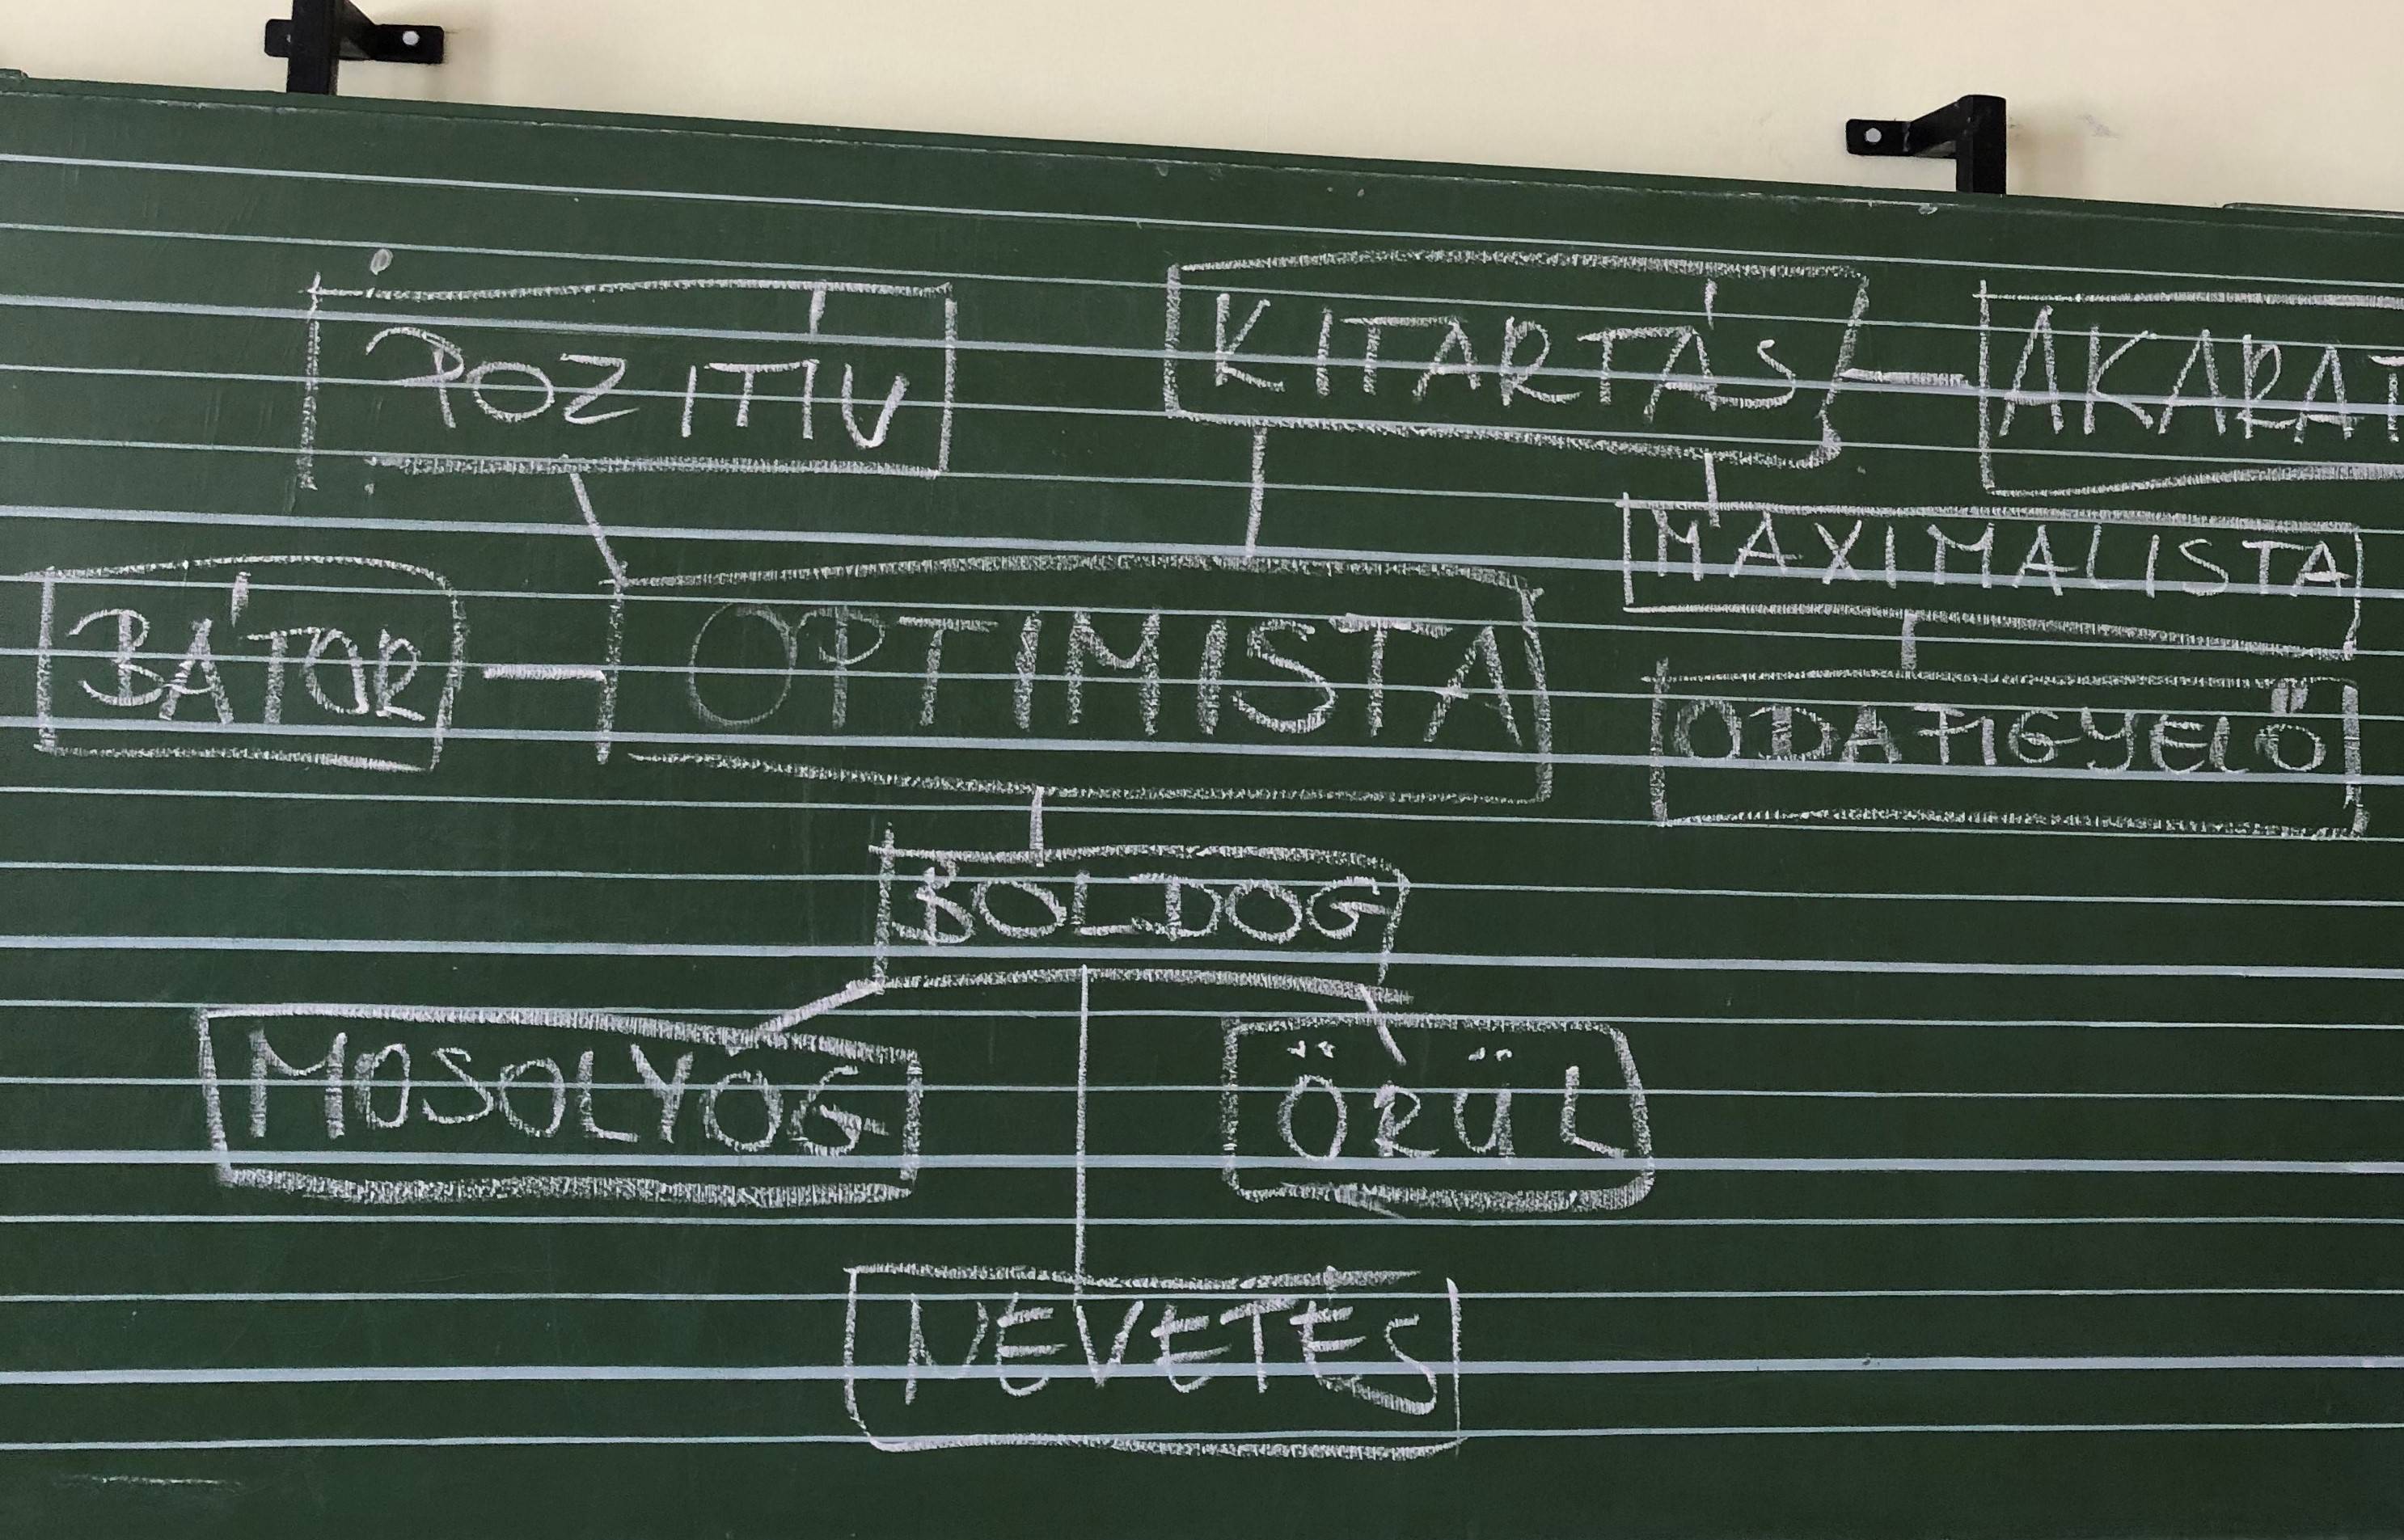 POZITÍV
KITARTÁS
AKARAT
MAXIMALISTA
BÁTOR
OPTIMISTA
ODAFIGYELŐ
BOLDOG
MOSOLYOG
ÖRÜL
NEVETÉS